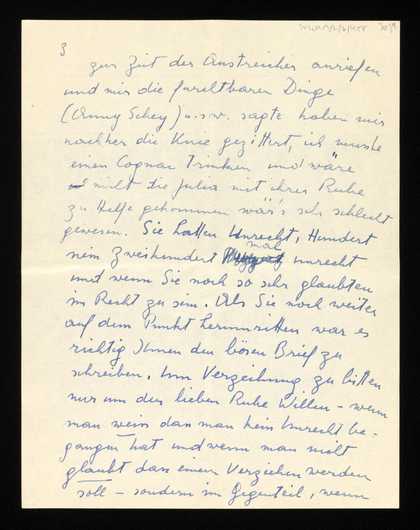 3
zur Zeit der Anstreicher anriefen
und mir die furchtbaren Dinge
(Anny Schey) u.s.w. sagte haben mir
nachher die Knie gezittert, ich musste
einen Cognac trinken und wäre
nicht die Julia mit ihrer Ruhe
zu Hilfe gekommen wär's sehr schlecht
gewesen. Sie hatten Unrecht, Hundert
nein Zweihundert mal unrecht
und wenn Sie noch so sehr glaubten
im Recht zu sein. Als Sie noch weiter
auf dem Punkt herumritten war es
richtig Ihnen den bösen Brief zu
schreiben. Um Verzeihung zu bitten
nur um der lieben Ruhe Willen – wenn
man weiss dass man kein Unrecht be-
gangen hat und wenn man nicht
glaubt dass einem Verziehen werden
soll – sondern im Gegenteil, wenn